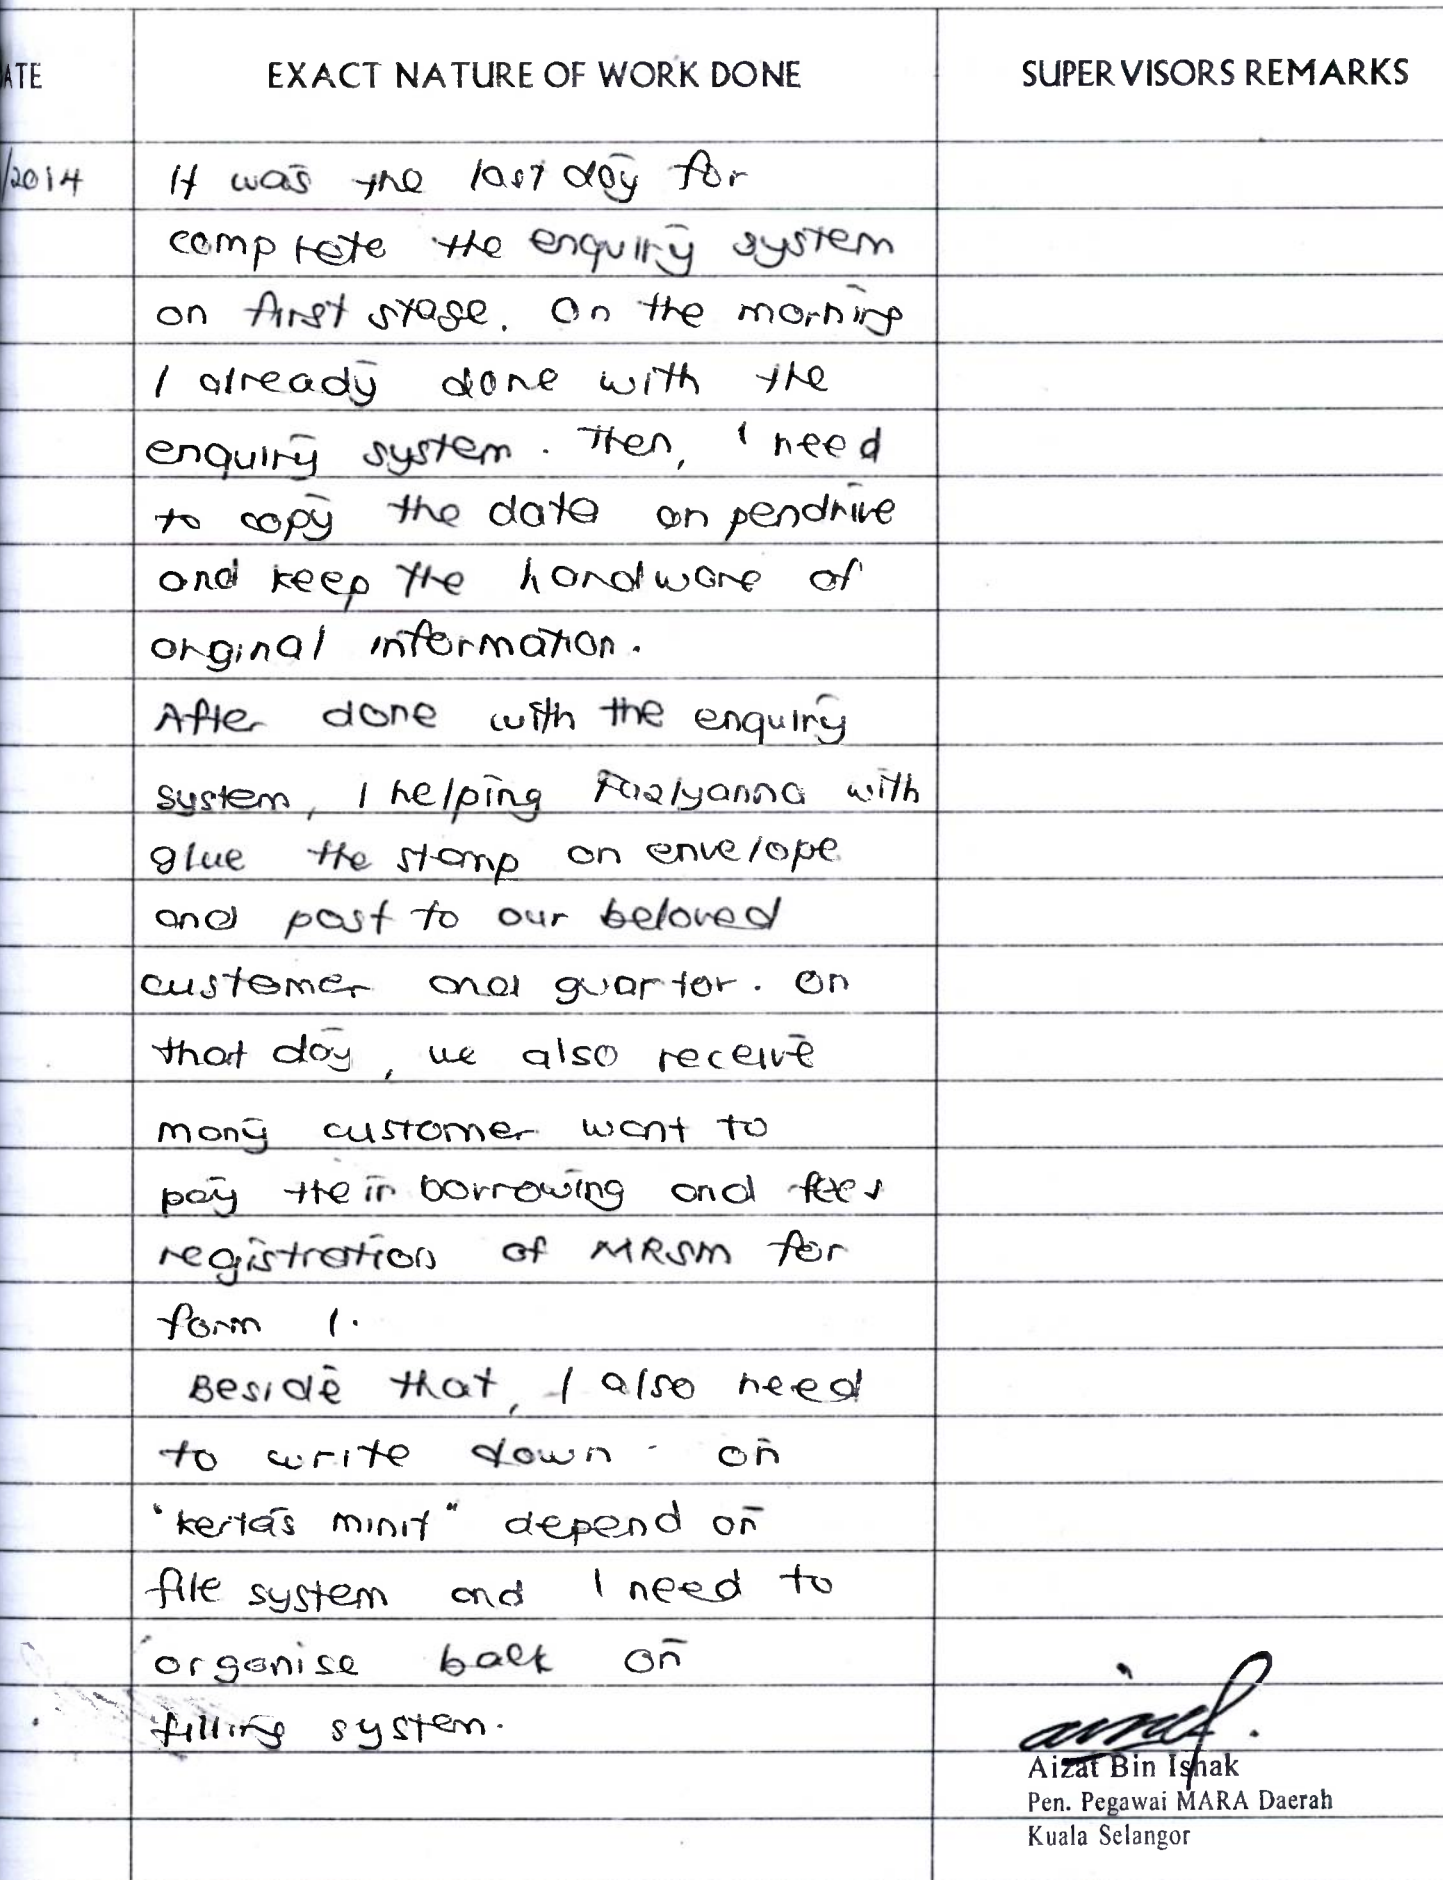 ATE EXACT NATURE OF WORK DONE SUPERVISORS REMARKS
/2014 It was the last day for
complete the enquiry system
on first stage. On the morning
I already done with the
enquiry system. Then, I need
to copy the data on pendrive
and keep the hardware of
orginal information.
After done with the enquiry
system, I helping Fazlyanna with
glue the stamp on envelope
and post to our beloved
customer and guartor. On
that day, we also receive
many customer want to
pay their borrowing and fees
registration of MRSM for
form 1.
Beside that, I also need
to write down on
"kertas minit" depend on
file system and I need to
organise back on
filling system.
Aizat Bin Ishak
Pen. Pegawai MARA Daerah
Kuala Selangor